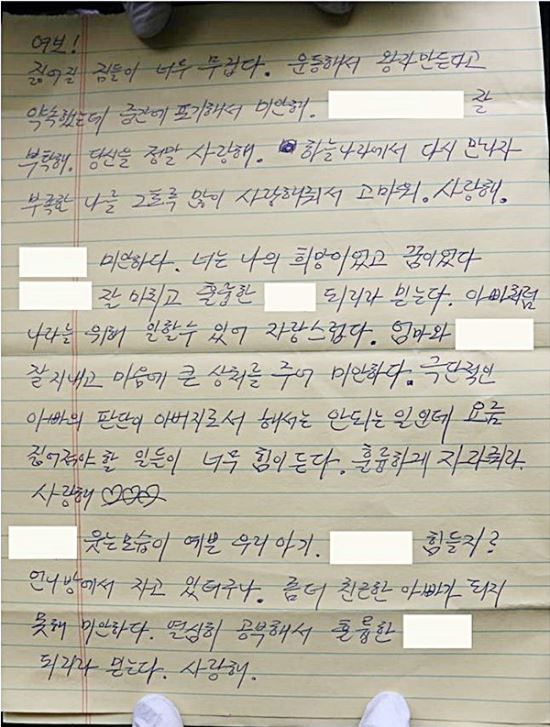 여보!
짊어질 짐들이 너무 무겁다. 운동해서 왕자만든다고
약속했는데 중간에 포기해서 미안해. 잘
부탁해. 당신을 정말 사랑해. 하늘나라에서 다시 만나자
부족한 나를 그토록 많이 사랑해줘서 고마워. 사랑해.
미안하다. 너는 나의 희망이었고 꿈이었다
잘 마치고 훌륭한 되리라 믿는다. 아빠처럼
나라를 위해 일할수 있어 자랑스럽다. 엄마와
잘 지내고 마음에 큰 상처를 주어 미안하다. 극단적인
아빠의 판단이 아버지로서 해서는 안되는 일인데 요즘
짊어져야 할 일들이 너무 힘이 든다. 훌륭하게 자라줘라.
사랑해 ♡♡♡
웃는모습이 예쁜 우리 아가. 힘들지?
언니방에서 자고 있더구나. 좀더 친근한 아빠가 되지
못해 미안하다. 열심히 공부해서 훌륭한
되리라 믿는다. 사랑해.